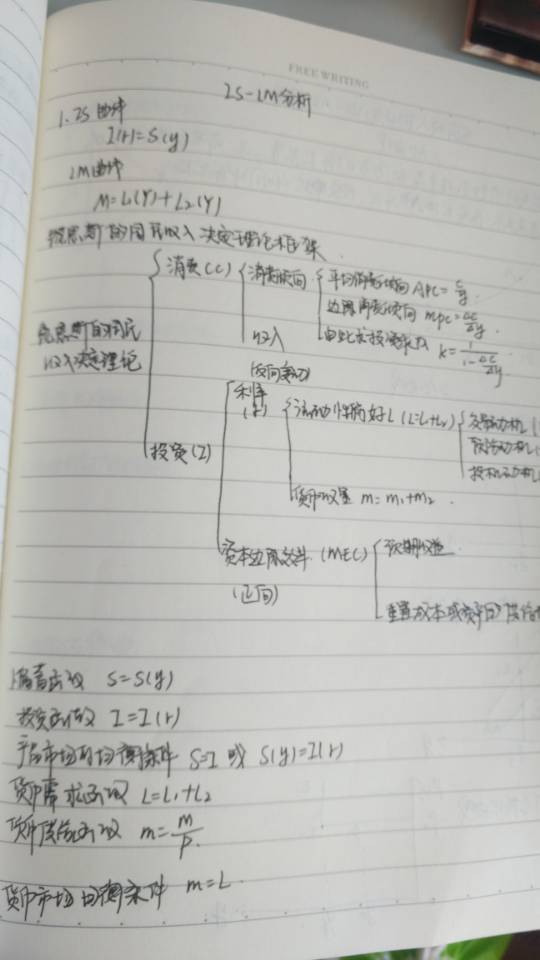 FREE WRITING
IS-LM分析
1. IS曲线
I(r)=S(y)
LM曲线
M=L1(Y)+L2(Y)
凯恩斯的国民收入决定理论框架
消费(C)
消费倾向
平均消费倾向 APC=c/y
边际消费倾向 mpc=ΔC/Δy
由此求投资乘数 k=1/(1-ΔC/Δy)
收入
凯恩斯的国民
收入决定理论
(反向变动)
利率
(r)
流动性偏好L (L=L1+L2)
交易动机
预防动机
投机动机
投资(I)
货币数量 m=m1+m2
资本边际效率 (MEC)
(正向)
预期收益
重置成本或资本
储蓄函数 S=S(y)
投资函数 I=I(r)
产品市场的均衡条件 S=I 或 S(y)=I(r)
货币需求函数 L=L1+L2
货币供给函数 m=M/P
货币市场均衡条件 m=L